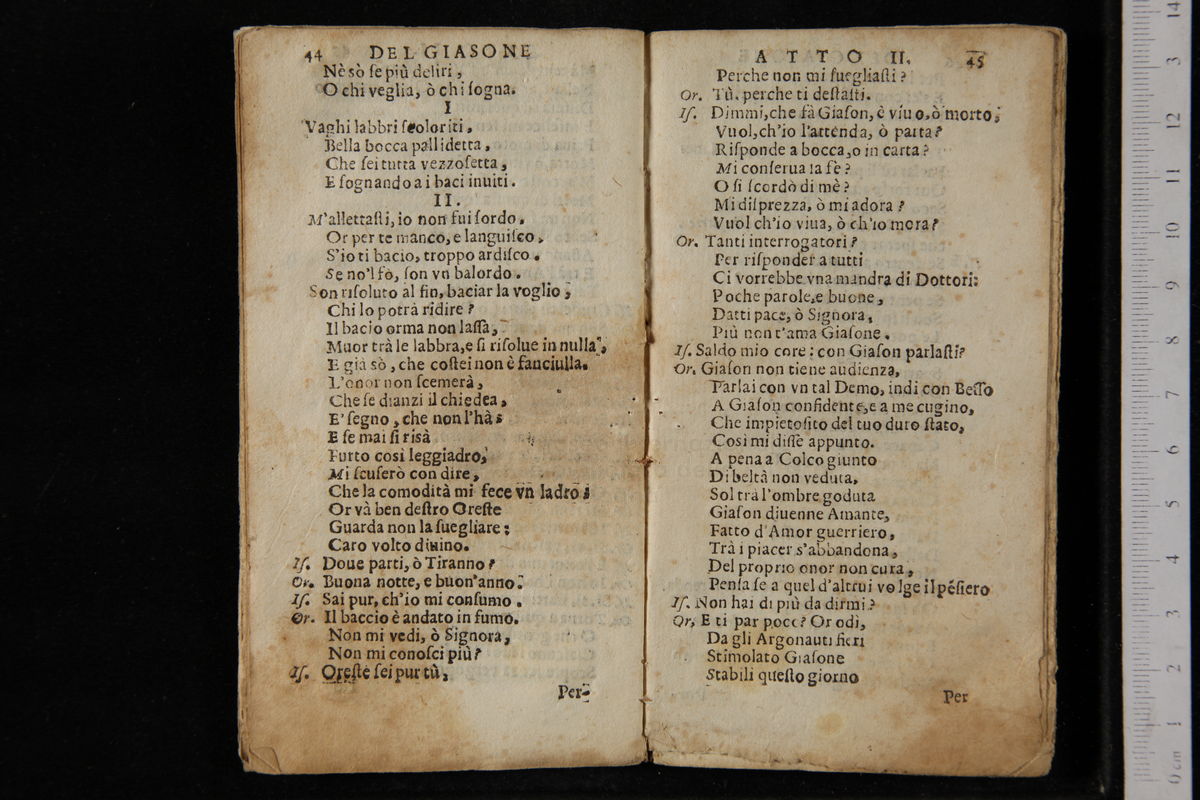 44 DEL GIASONE
Nè sò ſe più deliri,
O chi veglia, ò chi ſogna.
I
Vaghi labbri ſcoloriti,
Bella bocca pallidetta,
Che ſei tutta vezzoſetta,
E ſognando a i baci inuiti.
II.
M'allettaſti, io non fui ſordo.
Or per te manco, e languiſco,
S'io ti bacio, troppo ardiſco.
Se no'l fò, ſon vn balordo.
Son riſoluto al fin, baciar la voglio;
Chi lo potrà ridire?
Il bacio orma non laſſa,
Muor trà le labbra, e ſi riſolue in nulla,
E già sò, che coſtei non è fanciulla.
L'onor non ſcemerà,
Che ſe dianzi il chiedea,
E' ſegno, che non l'hà;
E ſe mai ſi risà
Furto cosi leggiadro,
Mi ſcuſerò con dire,
Che la comodità mi fece vn ladro;
Or và ben deſtro Oreſte
Guarda non la ſuegliare;
Caro volto diuino.
Iſ. Doue parti, ò Tiranno?
Or. Buona notte, e buon'anno.
Iſ. Sai pur, ch'io mi conſumo.
Or. Il baccio è andato in fumo.
Non mi vedi, ò Signora,
Non mi conoſci più?
Iſ. Oreſte ſei pur tù,
Per-
ATTO II. 45
Perche non mi ſuegliaſti?
Or. Tù, perche ti deſtaſti.
Iſ. Dimmi, che fà Giaſon, è viuo, ò morto;
Vuol, ch'io l'attenda, ò parta?
Riſponde a bocca, o in carta?
Mi conſerua la fè?
O ſi ſcordò di mè?
Mi diſprezza, ò mi adora?
Vuol ch'io viua, ò ch'io mora?
Or. Tanti interrogatori?
Per riſponder a tutti
Ci vorrebbe vna mandra di Dottori:
Poche parole, e buone,
Datti pace, ò Signora,
Più non t'ama Giaſone.
Iſ. Saldo mio core: con Giaſon parlaſti?
Or. Giaſon non tiene audienza,
Parlai con vn tal Demo, indi con Beſſo
A Giaſon confidente, e a me cugino,
Che impietoſito del tuo duro ſtato,
Cosi mi diſſe appunto.
A pena a Colco giunto
Di beltà non veduta,
Sol trà l'ombre goduta
Giaſon diuenne Amante,
Fatto d'Amor guerriero,
Trà i piacer s'abbandona,
Del proprio onor non cura,
Penſa ſe a quel d'altrui volge il pẽſiero
Iſ. Non hai di più da dirmi?
Or, E ti par poco? Or odi,
Da gli Argonauti fieri
Stimolato Giaſone
Stabili queſto giorno
Per